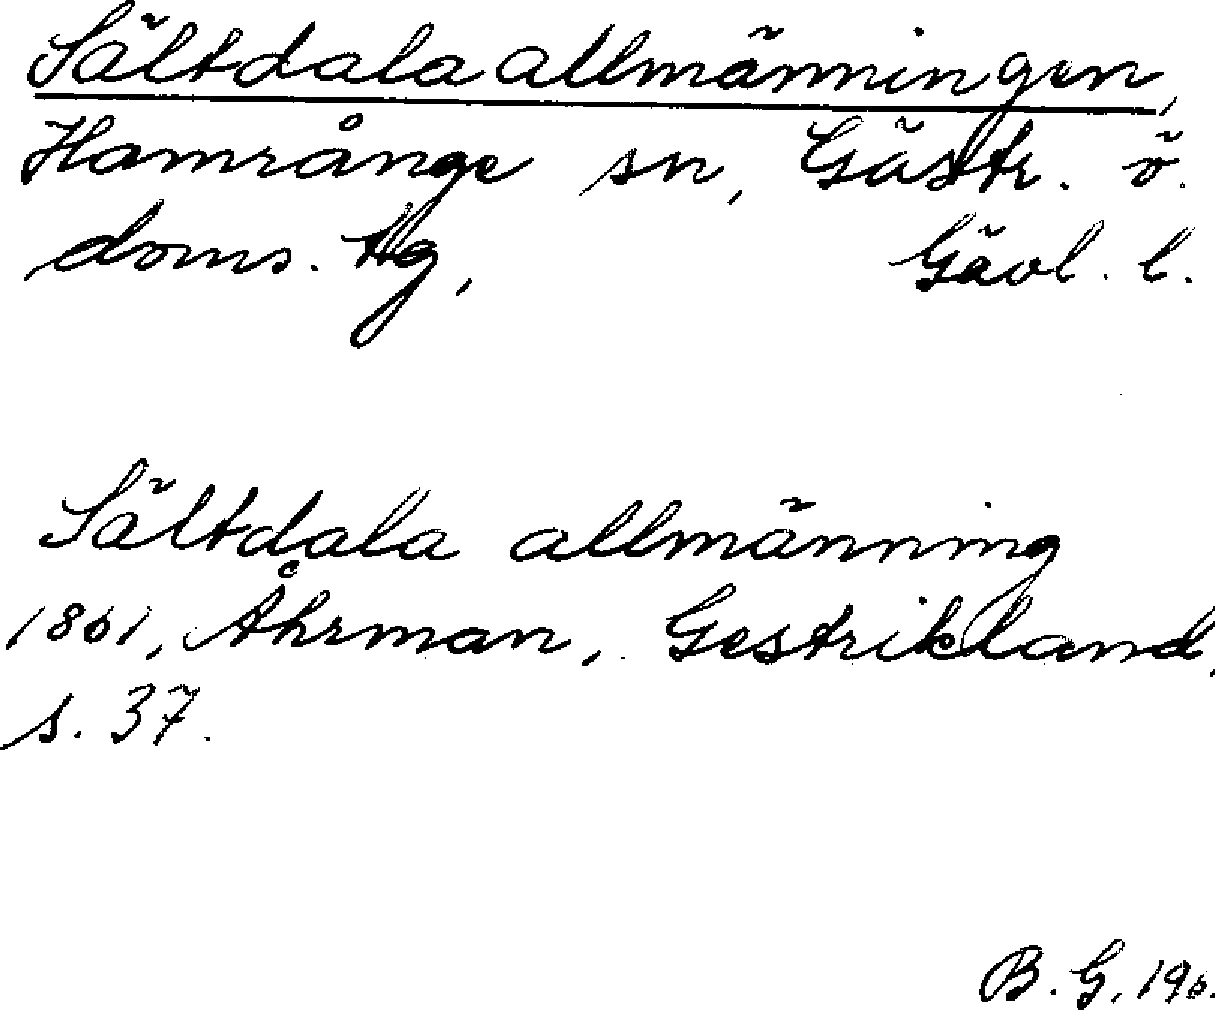 Sältdala allmänningen,
Hamrånge sn, Gästr. ö.
doms. hg, Gävl. l.
Sältdala allmänning
1861, Åhrman, Gestrikland,
s. 37.
B. G. 196.